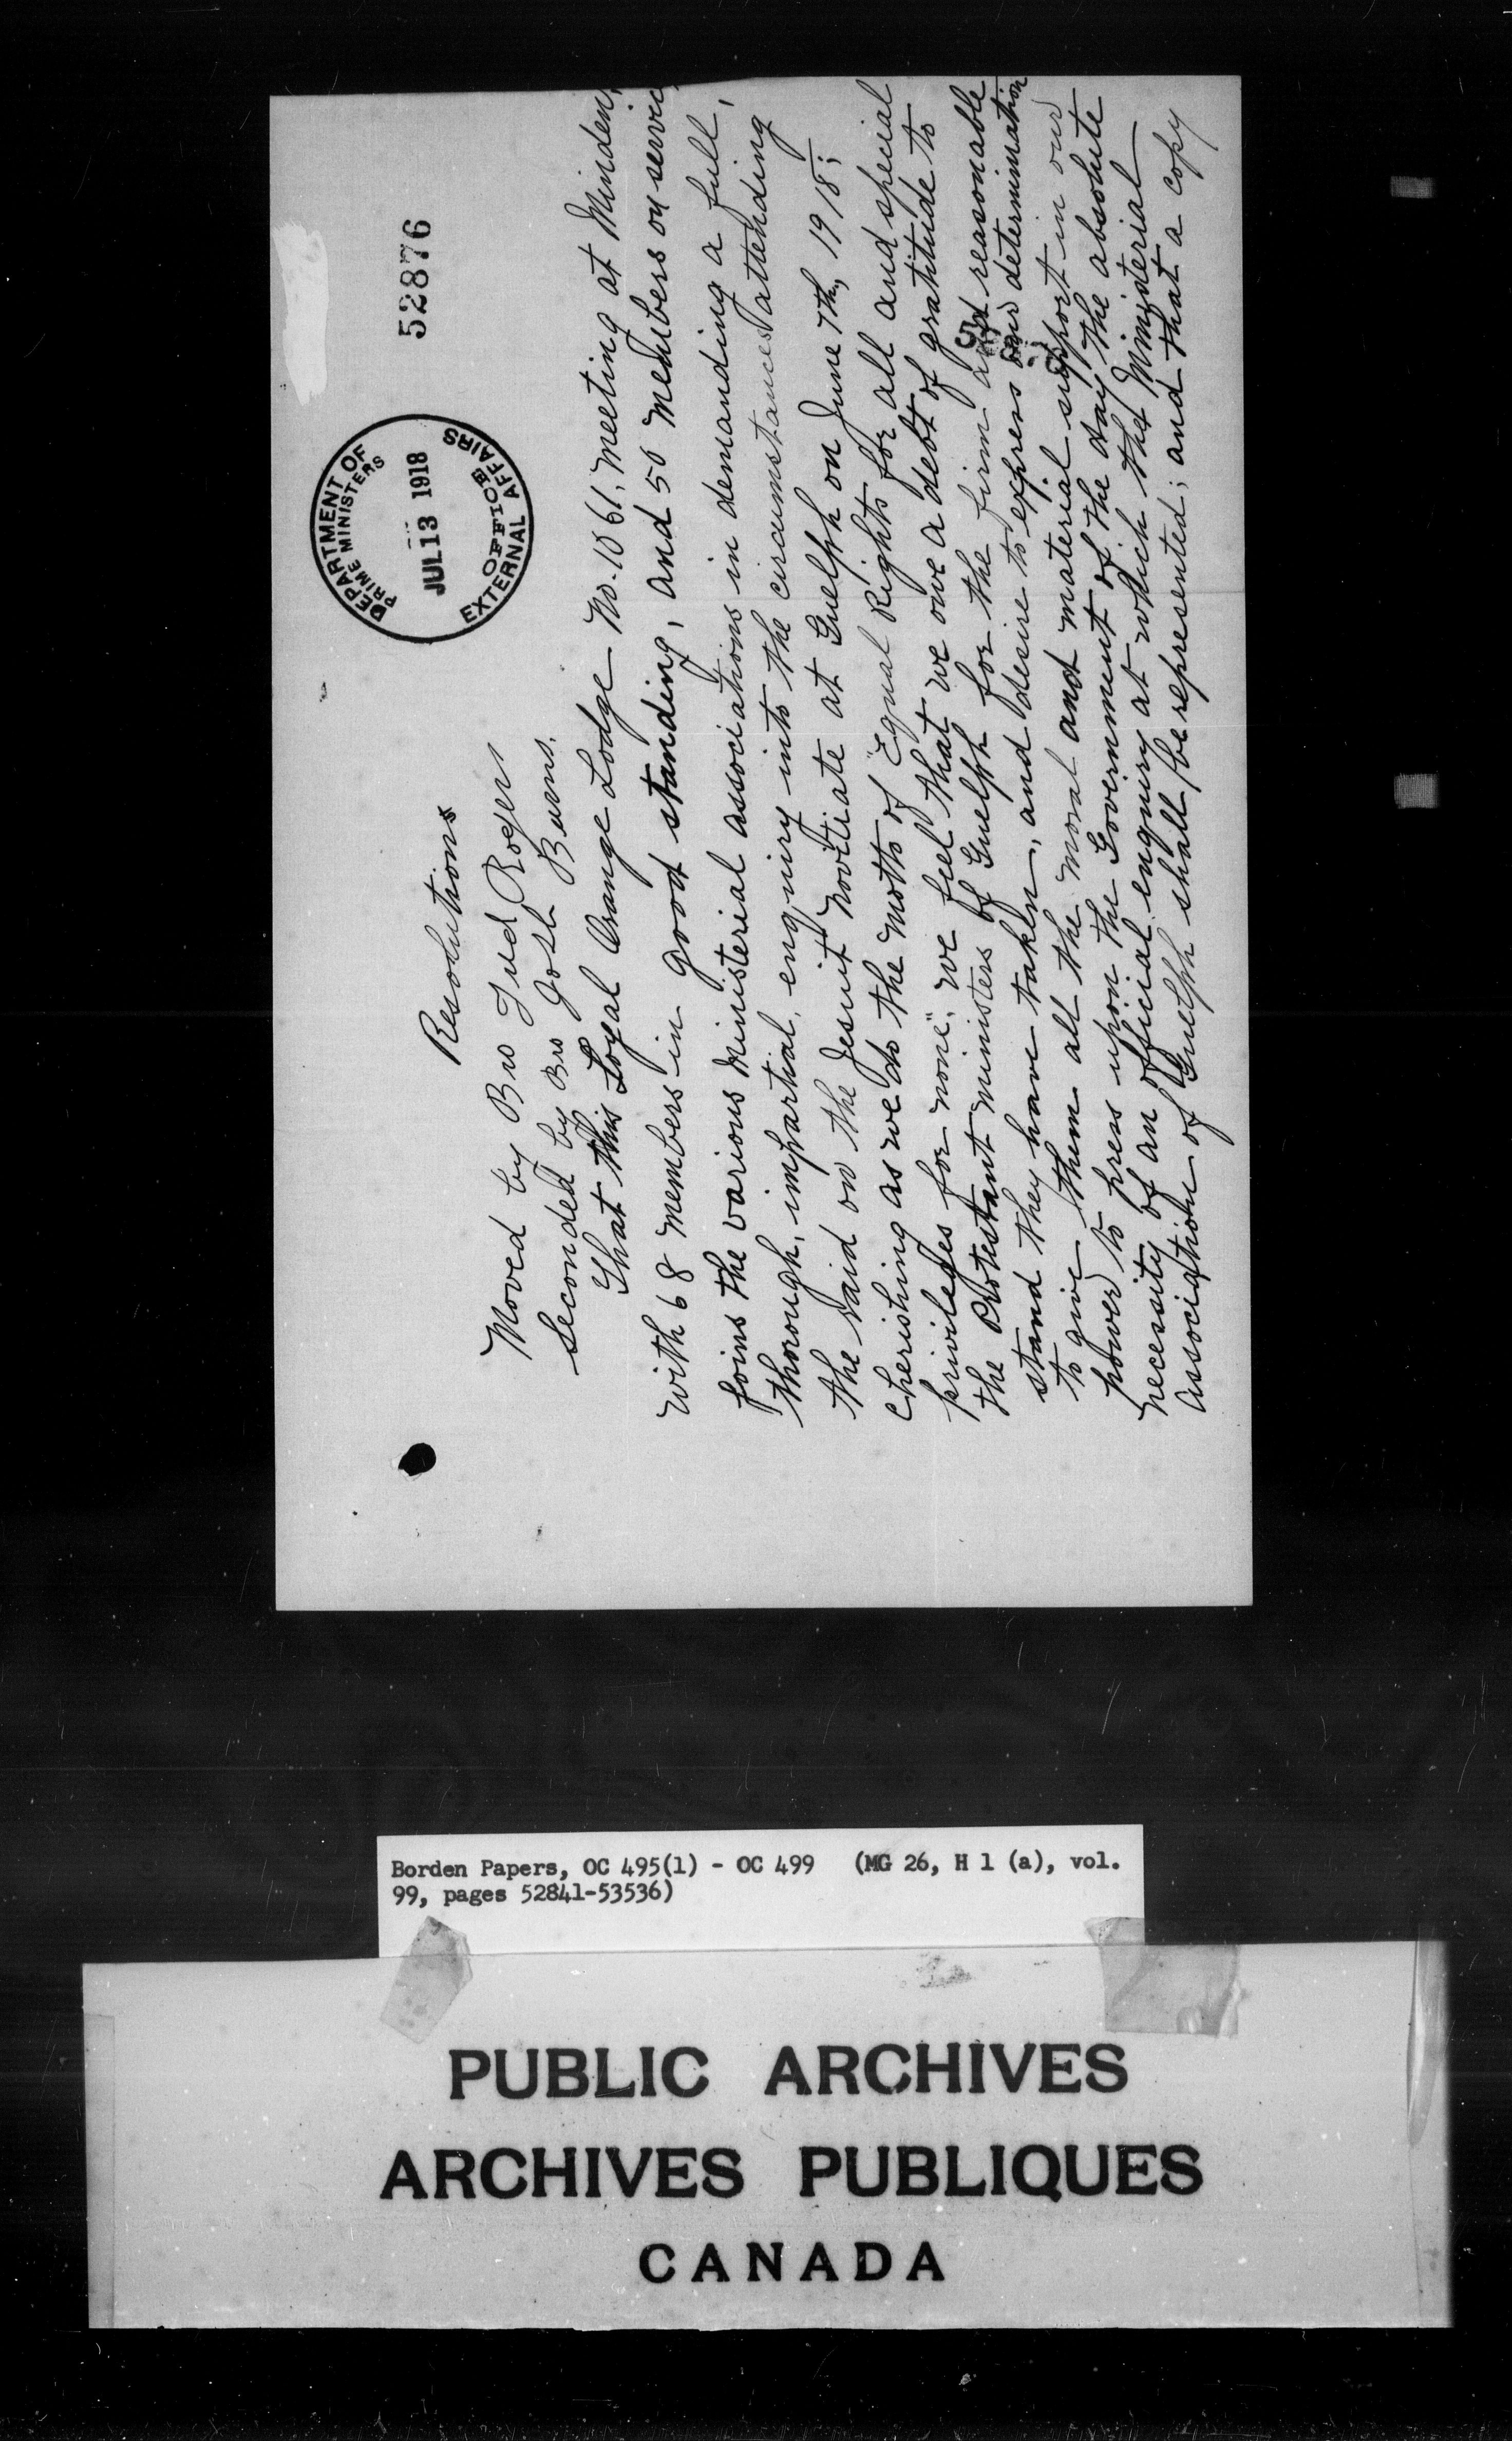 52876
DEPARTMENT OF
PRIME MINISTERS
JUL 13 1918
OFFICE
EXTERNAL AFFAIRS
Resolutions
Moved by Bro Fred Rogers
Seconded by Bro Josh Burns.
That this Loyal Orange Lodge No. 1061, meeting at Minden,
with 68 members in good standing, and 50 members on service
joins the various Ministerial associations in demanding a full,
thorough, impartial, enquiry into the circumstances attending
the raid on the Jesuit Novitiate at Guelph on June 7th, 1918;
Cherishing as we do the motto of "Equal Rights for all and special
privileges for none", we feel that we owe a debt of gratitude to
the Protestant ministers of Guelph for the firm and reasonable
stand they have taken, and desire to express our determination
to give them all the moral and material support in our
power to press upon the Government of the day the absolute
necessity of an official enquiry at which the Ministerial
Association of Guelph shall be represented; and that a copy
Borden Papers, OC 495(1) - OC 499 (MG 26, H 1 (a), vol.
99, pages 52841-53536)
PUBLIC ARCHIVES
ARCHIVES PUBLIQUES
CANADA